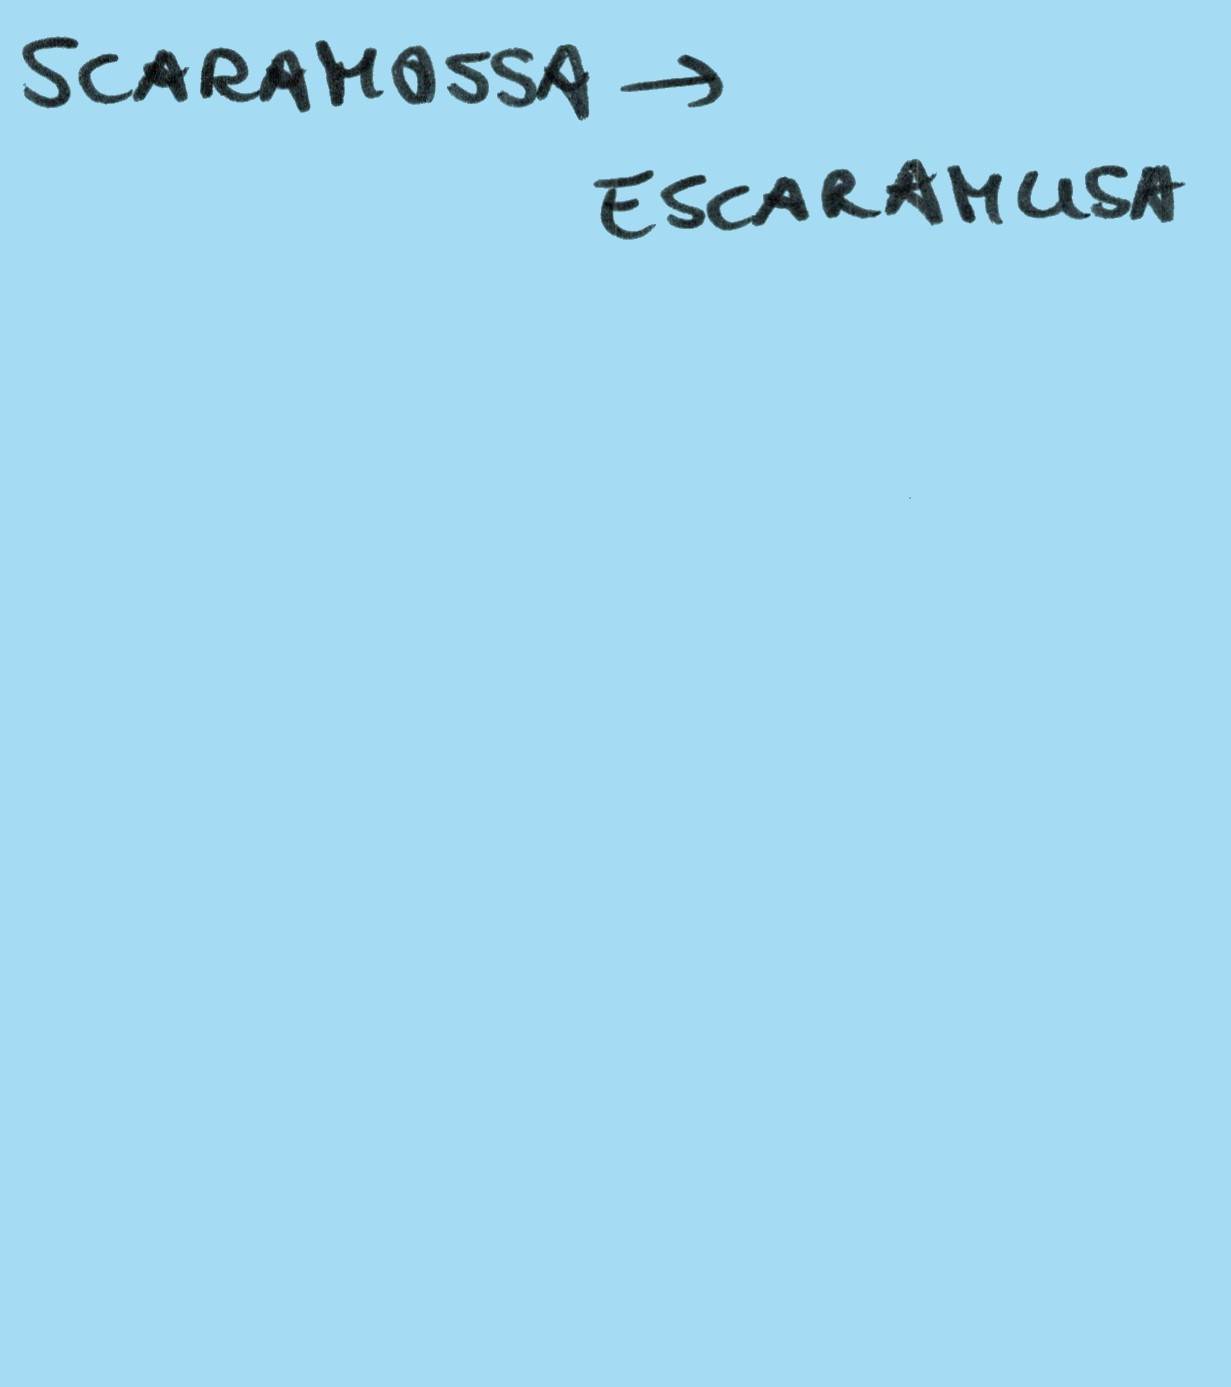 SCARAMOSSA →
ESCARAMUSA